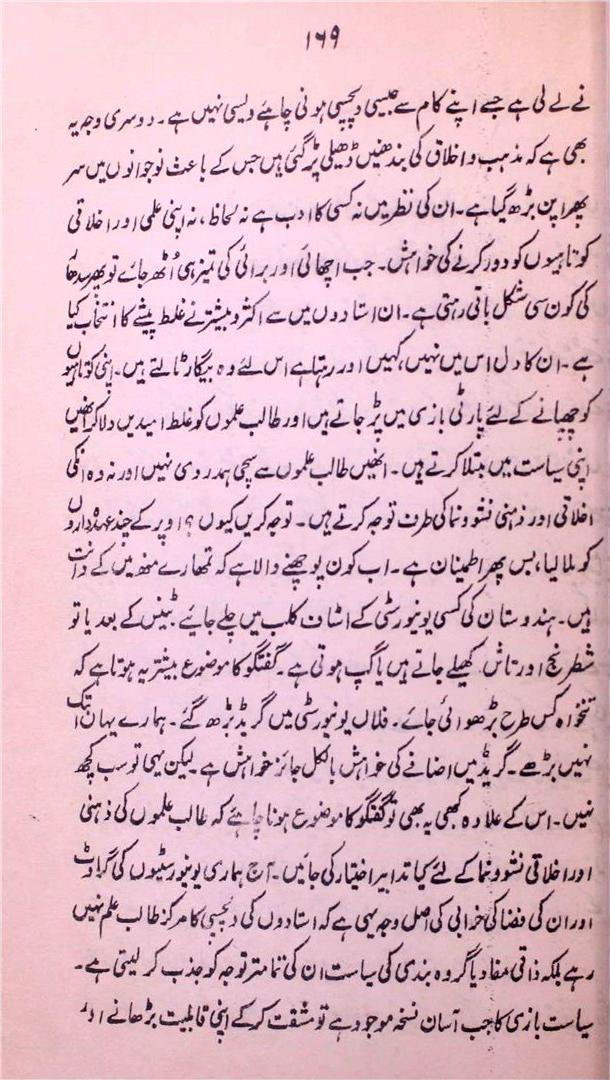 ۱۶۹
نے لے لی ہے جسے اپنے کام سے جیسی دلچسپی ہونی چاہئے ویسی نہیں ہے۔ دوسری وجہ یہ
بھی ہے کہ مذہب و اخلاق کی بندھنیں ڈھیلی پڑ گئی ہیں جس کے باعث نوجوانوں میں سر
پھرا پن بڑھ گیا ہے۔ ان کی نظر میں نہ کسی کا ادب ہے نہ لحاظ، نہ اپنی علمی اور اخلاقی
کوتاہیوں کو دور کرنے کی خواہش۔ جب اچھائی اور برائی کی تمیز ہی اُٹھ جائے تو پھر سدھار
کی کون سی شکل باقی رہتی ہے۔ ان استادوں میں سے اکثر و بیشتر نے غلط پیشے کا انتخاب کیا
ہے۔ ان کا دل اس میں نہیں، کہیں اور رہتا ہے اس لئے وہ بیگار ٹالتے ہیں۔ اپنی کوتاہیوں
کو چھپانے کے لئے پارٹی بازی میں پڑ جاتے ہیں اور طالب علموں کو غلط امیدیں دلا کر انھیں
اپنی سیاست میں مبتلا کرتے ہیں۔ انھیں طالب علموں سے سچی ہمدردی نہیں اور نہ وہ انکی
اخلاقی اور ذہنی نشوونما کی طرف توجہ کرتے ہیں۔ توجہ کریں کیوں؟ اوپر کے چند عہدہ داروں
کو ملا لیا، بس پھر اطمینان ہے۔ اب کون پوچھنے والا ہے کہ تمھارے منھ میں کے دانت
ہیں۔ ہندوستان کی کسی یونیورسٹی کے اسٹاف کلب میں چلے جائیے ٹینس کے بعد یا تو
شطرنج اور تاش کھیلے جاتے ہیں یا گپ ہوتی ہے۔ گفتگو کا موضوع بیشتر یہ ہوتا ہے کہ
تنخواہ کس طرح بڑھوائی جائے۔ فلاں یونیورسٹی میں گریڈ بڑھ گئے۔ ہمارے یہاں اب تک
نہیں بڑھے۔ گریڈ میں اضافے کی خواہش بالکل جائز خواہش ہے لیکن یہی تو سب کچھ
نہیں۔ اس کے علاوہ کبھی یہ بھی تو گفتگو کا موضوع ہونا چاہئے کہ طالب علموں کی ذہنی
اور اخلاقی نشوونما کے لئے کیا تدابیر اختیار کی جائیں۔ آج ہماری یونیورسٹیوں کی گراوٹ
اور ان کی فضا کی خرابی کی اصل وجہ یہی ہے کہ استادوں کی دلچسپی کا مرکز طالب علم نہیں
رہے بلکہ ذاتی مفاد یا گروہ بندی کی سیاست ان کی تمامتر توجہ کو جذب کر لیتی ہے۔
سیاست بازی کا جب آسان نسخہ موجود ہے تو مشقت کر کے اپنی قابلیت بڑھانے اور